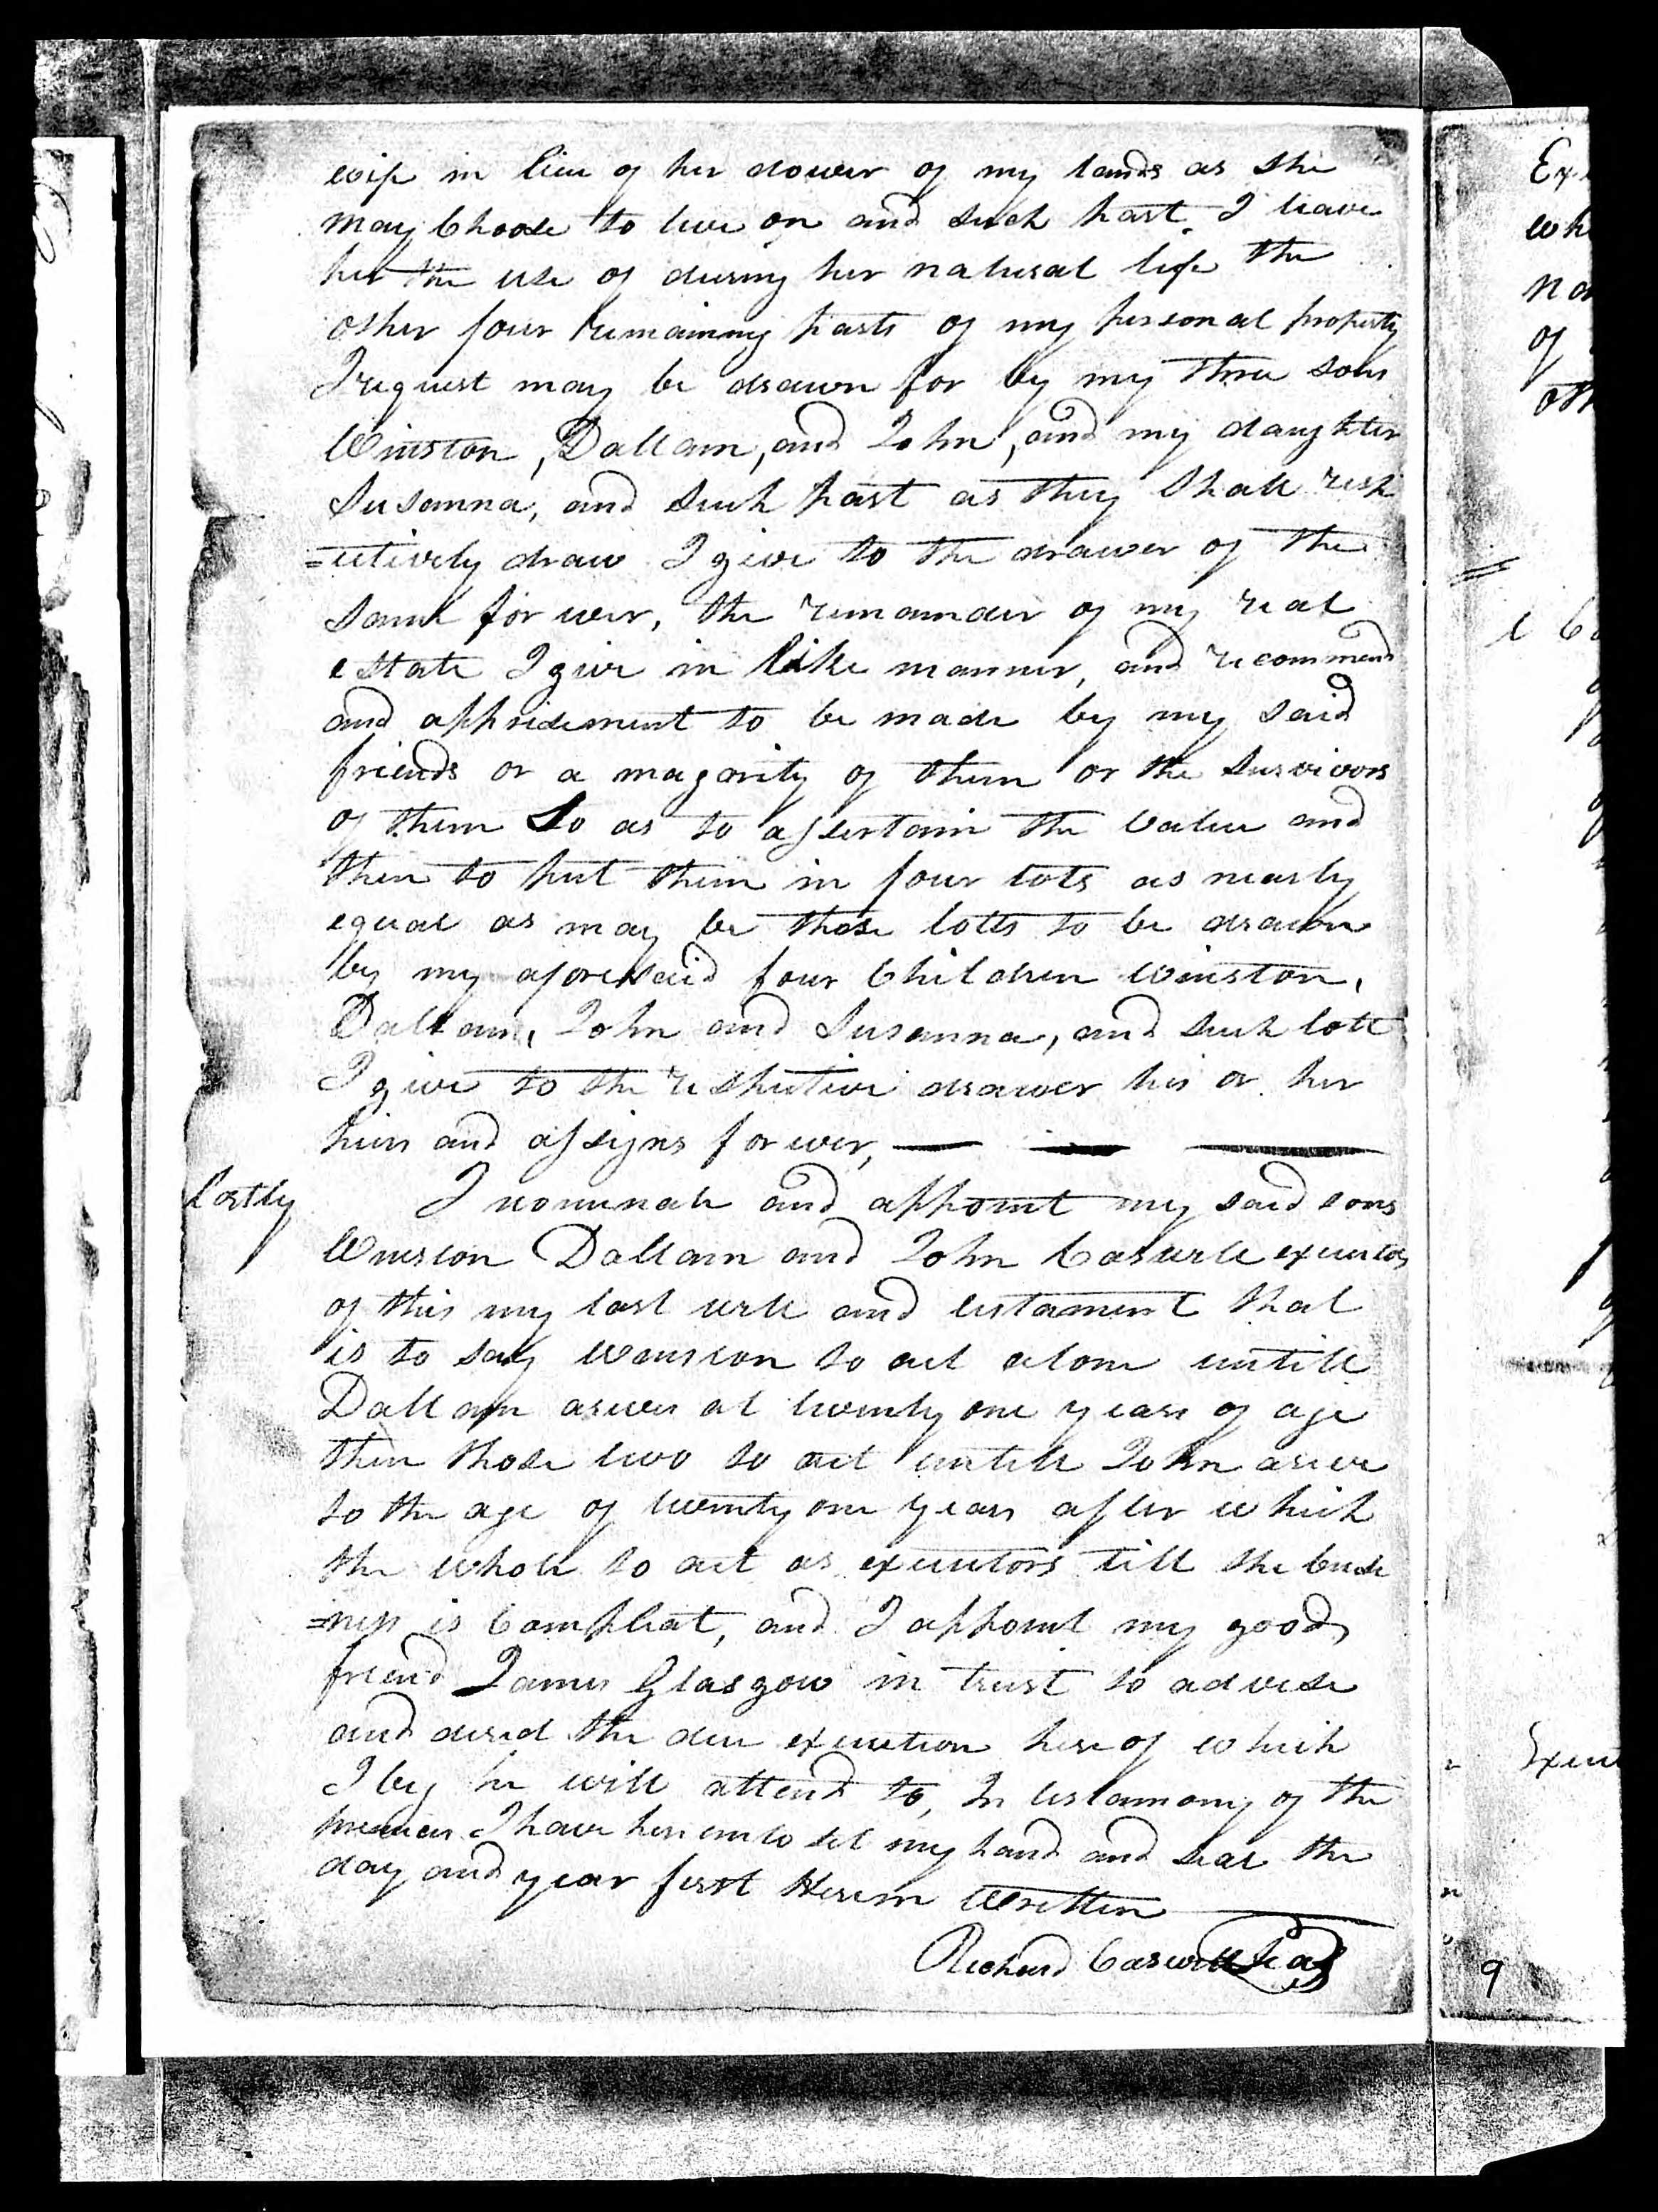 wife in lieu of her dower of my lands as she
may Choose to live on and such part I leave
her the use of during her natural life the
other four remaining parts of my personal property
I request may be drawn for by my three sons
Winston, Dallam, and John, and my daughter
Susanna, and such part as they shall resp
=ectively draw I give to the drawer of the
same for ever, the remainder of my real
estate I give in like manner, and recommend
and apprisement to be made by my said
friends or a magority of them or the survivors
of them So as to assertain the value and
then to put them in four lots as nearly
equal as may be those lotts to be drawn
by my aforesaid four Children Winston,
Dallam, John and Susanna, and such lott
I give to the respective drawer his or her
heirs and assigns for ever,
Lastly I nominate and appoint my said sons
Winston Dallam and John Caswell executors
of this my last will and testament that
is to say Winston to act alone untill
Dallam arives at twenty one years of age
then those two to act untill John arive
to the age of twenty one years after which
the whole to act as executors till the busi
=ness is Compleat, and I appoint my good
friend James Glasgow in trust to advise
and direct the due execution hereof which
I beg he will attend to, In testamony of the
premises I have hereunto set my hand and seal the
day and year first Herein Written
Richard Caswell Seal
Ex
wh
of
oth
9